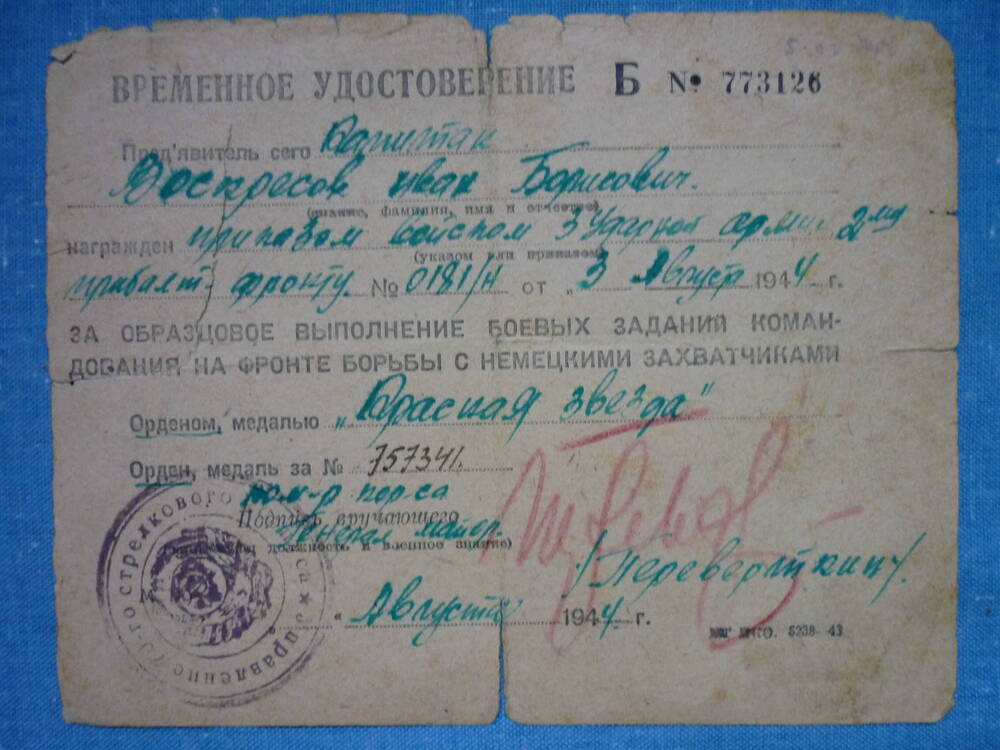 ВРЕМЕННОЕ УДОСТОВЕРЕНИЕ Б № 773126
Пред'явитель сего Капитан
Воскресов Иван Борисович.
(звание, фамилия, имя и отчество)
награжден приказом войскам 3 Ударной армии 2му
(указом или приказом)
прибалт. фронту № 0181/н от „ 3 Августа 1944 г.
ЗА ОБРАЗЦОВОЕ ВЫПОЛНЕНИЕ БОЕВЫХ ЗАДАНИЙ КОМАН-
ДОВАНИЯ НА ФРОНТЕ БОРЬБЫ С НЕМЕЦКИМИ ЗАХВАТЧИКАМИ
Орденом, медалью „Красная звезда"
Орден, медаль за № 757341.
ком-р кор-са
Подпись вручающего
Генерал майор.
должность и военное звание)
/Переверткин/.
„ Августа 1944 г.
НКО. 5238-43
го стрелкового
са ★ Управление